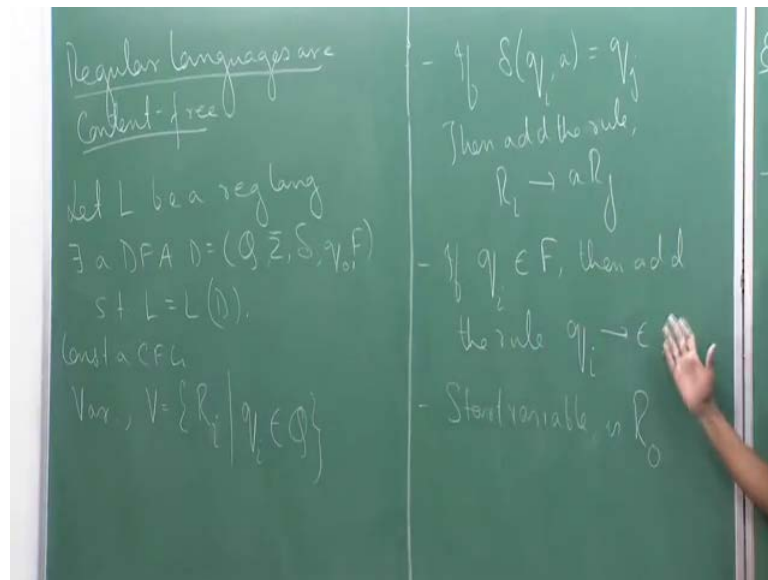 Regular languages are
Context-free
Let L be a reg lang
∃ a DFA D = (Q, Σ, δ, q₀, F)
st L = L(D).
Const a CFG
Var, V = {R_i | q_i ∈ Q}
- If δ(q_i, a) = q_j
Then add the rule,
R_i → aR_j
- If q_i ∈ F, then add
the rule q_i → ϵ
- Start variable is R₀